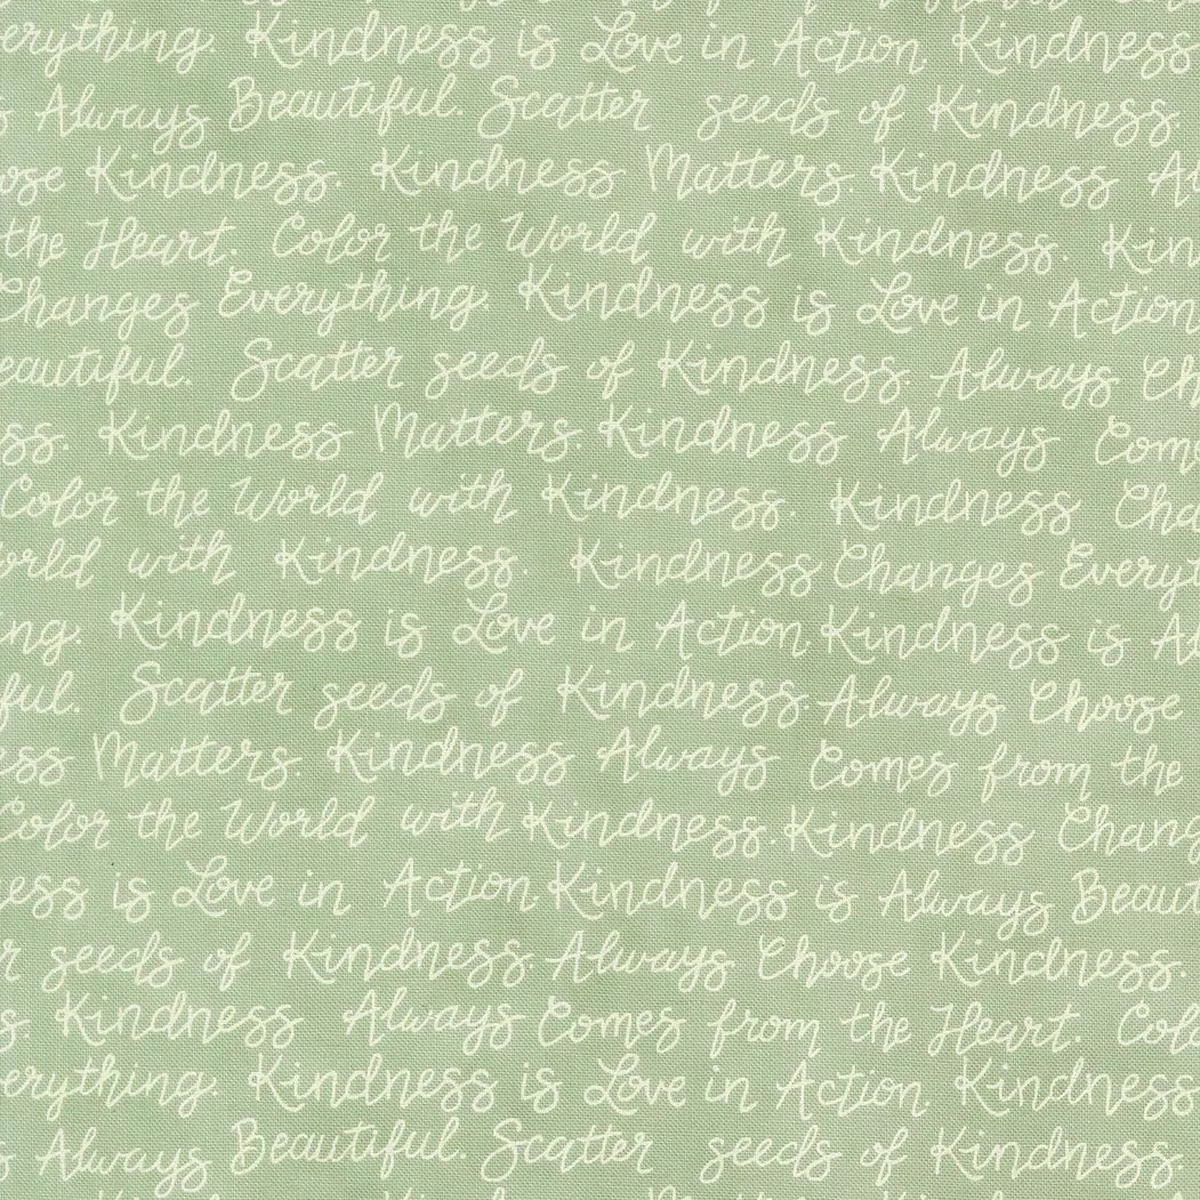 erything. Kindness is Love in Action. Kindness
Always Beautiful. Scatter seeds of Kindness
ose Kindness. Kindness Matters. Kindness A
the Heart. Color the World with Kindness. Kin
Changes Everything. Kindness is Love in Action
eautiful. Scatter seeds of Kindness. Always Ch
ss. Kindness Matters. Kindness Always Com
Color the World with Kindness. Kindness Cha
orld with Kindness. Kindness Changes Everyt
ng. Kindness is Love in Action Kindness is A
ful. Scatter seeds of Kindness. Always Choose
ess Matters. Kindness Always Comes from the
Color the World with Kindness. Kindness Chang
ess is Love in Action. Kindness is Always Beaut
r seeds of Kindness. Always Choose Kindness.
s. Kindness Always Comes from the Heart. Col
erything. Kindness is Love in Action. Kindness
Always Beautiful. Scatter seeds of Kindness.